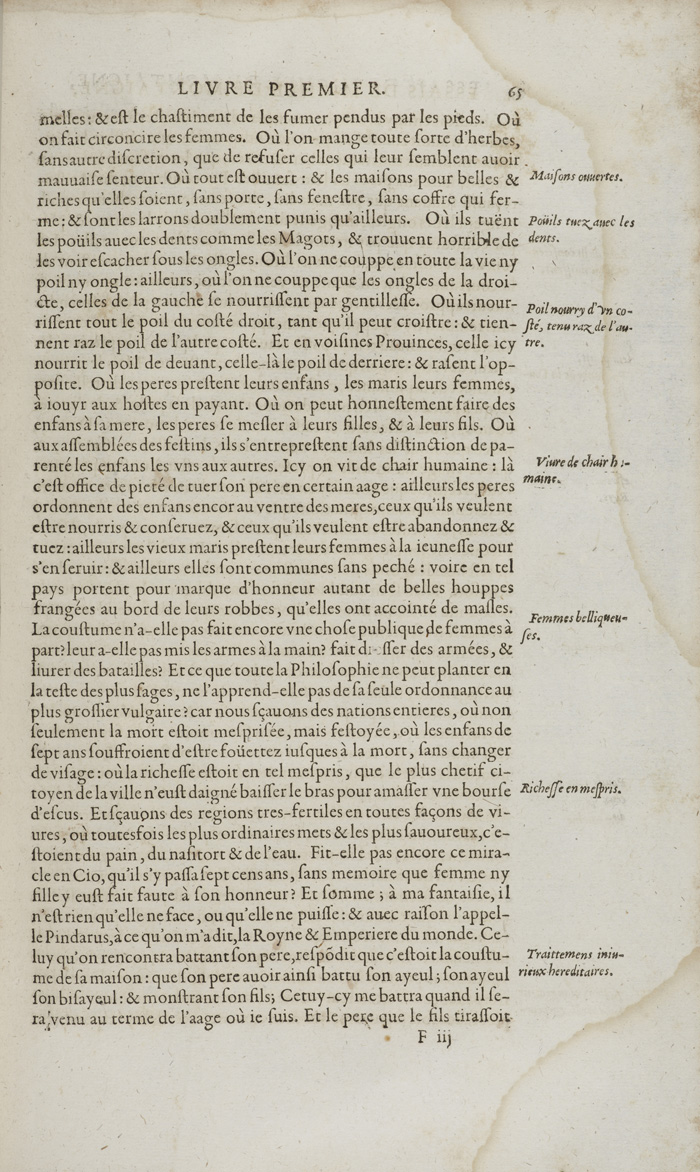 LIVRE PREMIER. 65
melles: & est le chastiment de les fumer pendus par les pieds. Où
on fait circoncire les femmes. Où l'on mange toute sorte d'herbes,
sans autre discretion, que de refuser celles qui leur semblent auoir
mauuaise senteur. Où tout est ouuert: & les maisons pour belles &
Maisons ouuertes.
riches qu'elles soient, sans porte, sans fenestre, sans coffre qui fer-
me: & sont les larrons doublement punis qu'ailleurs. Où ils tuënt
Poüils tuez auec les
les poüils auec les dents comme les Magots, & trouuent horrible de
dents.
les voir escacher sous les ongles. Où l'on ne couppe en toute la vie ny
poil ny ongle: ailleurs, où l'on ne couppe que les ongles de la droi-
cte, celles de la gauche se nourrissent par gentillesse. Où ils nour-
Poil nourry d'vn co-
rissent tout le poil du costé droit, tant qu'il peut croistre: & tien-
sté, tenu raz de l'au-
nent raz le poil de l'autre costé. Et en voisines Prouinces, celle icy
tre.
nourrit le poil de deuant, celle-là le poil de derriere: & rasent l'op-
posite. Où les peres prestent leurs enfans, les maris leurs femmes,
à iouyr aux hostes en payant. Où on peut honnestement faire des
enfans à sa mere, les peres se mesler à leurs filles, & à leurs fils. Où
aux assemblées des festins, ils s'entreprestent sans distinction de pa-
renté les enfans les vns aux autres. Icy on vit de chair humaine: là
Viure de chair h
c'est office de pieté de tuer son pere en certain aage: ailleurs les peres
maine.
ordonnent des enfans encor au ventre des meres, ceux qu'ils veulent
estre nourris & conseruez, & ceux qu'ils veulent estre abandonnez &
tuez: ailleurs les vieux maris prestent leurs femmes à la ieunesse pour
s'en seruir: & ailleurs elles sont communes sans peché: voire en tel
pays portent pour marque d'honneur autant de belles houppes
frangées au bord de leurs robbes, qu'elles ont accointé de masles.
La coustume n'a-elle pas fait encore vne chose publique de femmes à
Femmes belliqueu-
part? leur a-elle pas mis les armes à la main? fait des armées, &
ses.
liurer des batailles? Et ce que toute la Philosophie ne peut planter en
la teste des plus sages, ne l'apprend-elle pas de sa seule ordonnance au
plus grossier vulgaire? car nous sçauons des nations entieres, où non
seulement la mort estoit mesprisée, mais festoyée, où les enfans de
sept ans souffroient d'estre foüettez iusques à la mort, sans changer
de visage: où la richesse estoit en tel mespris, que le plus chetif ci-
toyen de la ville n'eust daigné baisser le bras pour amasser vne bourse
Richesse en mespris.
d'escus. Et sçauons des regions tres-fertiles en toutes façons de vi-
ures, où toutesfois les plus ordinaires mets & les plus sauoureux, c'e-
stoient du pain, du nasitort & de l'eau. Fit-elle pas encore ce mira-
cle en Cio, qu'il s'y passa sept cens ans, sans memoire que femme ny
fille y eust fait faute à son honneur? Et somme; à ma fantaisie, il
n'est rien qu'elle ne face, ou qu'elle ne puisse: & auec raison l'appel-
le Pindarus, à ce qu'on m'a dit, la Royne & Emperiere du monde. Ce-
luy qu'on rencontra battant son pere, respōdit que c'estoit la coustu-
Traittemens iniu-
me de sa maison: que son pere auoir ainsi battu son ayeul; son ayeul
rieux hereditaires.
son bisayeul: & monstrant son fils; Cetuy-cy me battra quand il se-
ra venu au terme de l'aage où ie suis. Et le pere que le fils tirassoit
F iij